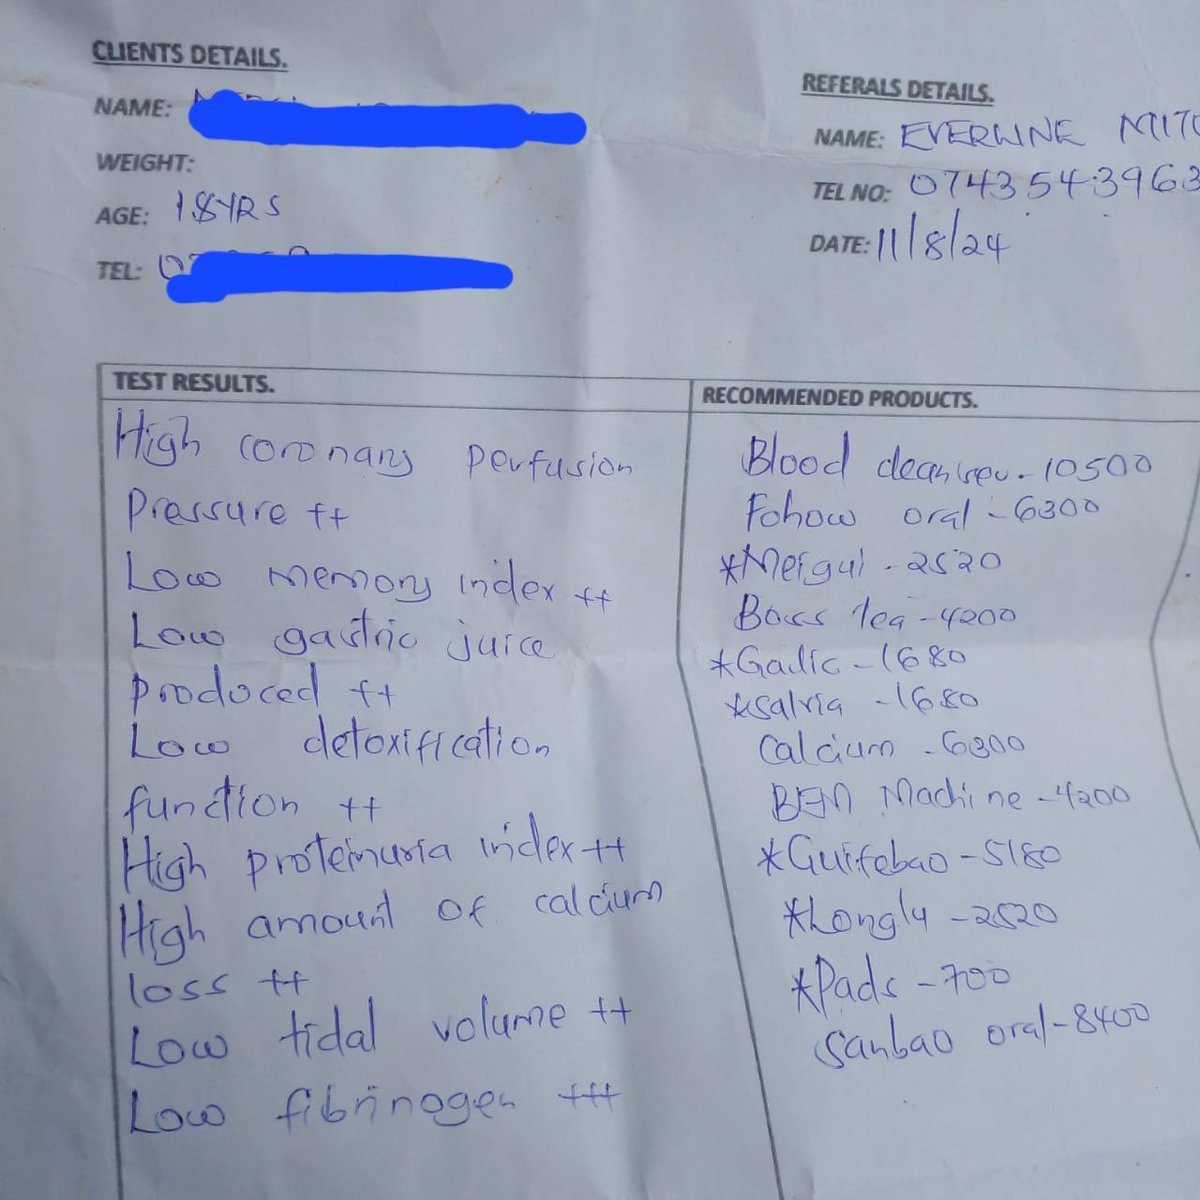 CLIENTS DETAILS.
NAME:
WEIGHT:
AGE: 18YRS
TEL:
REFERALS DETAILS.
NAME: EVERLINE
TEL NO: 0743543963
DATE: 11/8/24
TEST RESULTS.
High coronary perfusion
Pressure ++
Low memory index ++
Low gastric juice
produced ++
Low detoxification
function ++
High proteinuria index ++
High amount of calcium
loss ++
Low tidal volume ++
Low fibrinogen +++
RECOMMENDED PRODUCTS.
Blood cleanser - 10500
Fohow oral - 6300
*Meigui - 2520
Boss tea - 4200
*Gadlic - 1680
*salvia - 1680
Calcium - 6300
BEM Machine - 4200
*Guifebao - 5180
*Longly - 2520
*Pads - 700
Sanbao oral - 8400